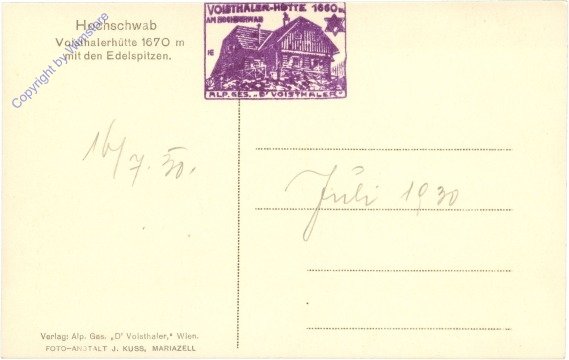 Hochschwab
Voisthalerhütte 1670 m
mit den Edelspitzen.
Copyright by Wiensfere
VOISTHALER-HÜTTE 1660 m
AM HOCHSCHWAB
ALP. GES. „D' VOISTHALER"
16/7. 30.
Juli 1930
Verlag: Alp. Ges. „D' Voisthaler," Wien.
FOTO-ANSTALT J. KUSS, MARIAZELL